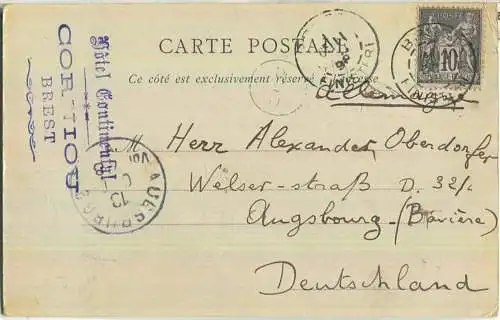 Hôtel Continental
CORTIOU
BREST
CARTE POSTALE
Ce côté est exclusivement réservé à l'adresse
10
Allemagne
M Herr Alexander Oberdorfer
Welser-straß D. 32/2
Augsbourg (Bavière)
Deutschland
13